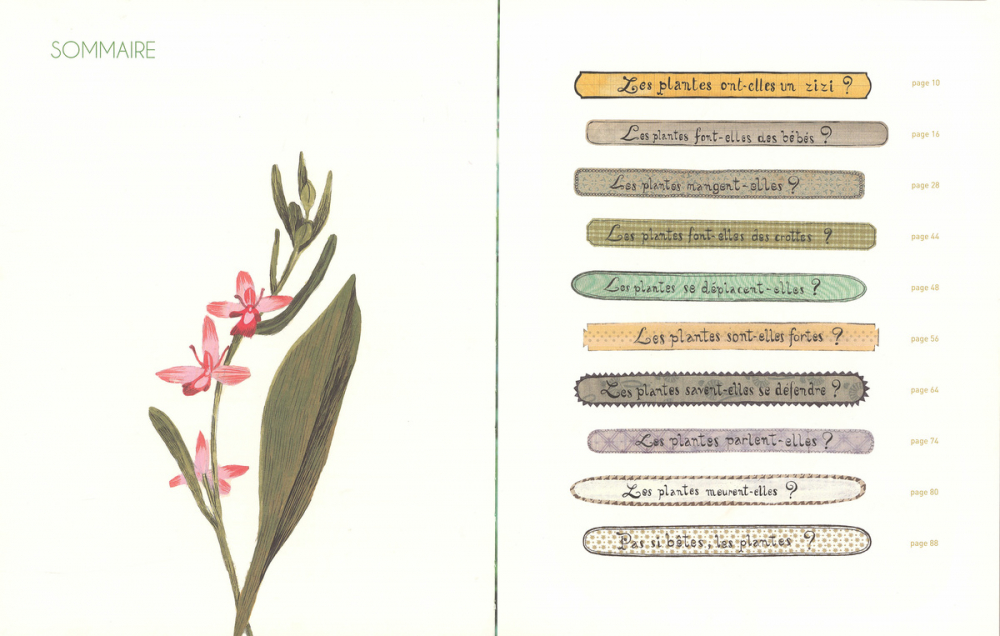 SOMMAIRE
Les plantes ont-elles un zizi ? page 10
Les plantes font-elles des bébés ? page 16
Les plantes mangent-elles ? page 28
Les plantes font-elles des crottes ? page 44
Les plantes se déplacent-elles ? page 48
Les plantes sont-elles fortes ? page 56
Les plantes savent-elles se défendre ? page 64
Les plantes parlent-elles ? page 74
Les plantes meurent-elles ? page 80
Pas si bêtes, les plantes ? page 88